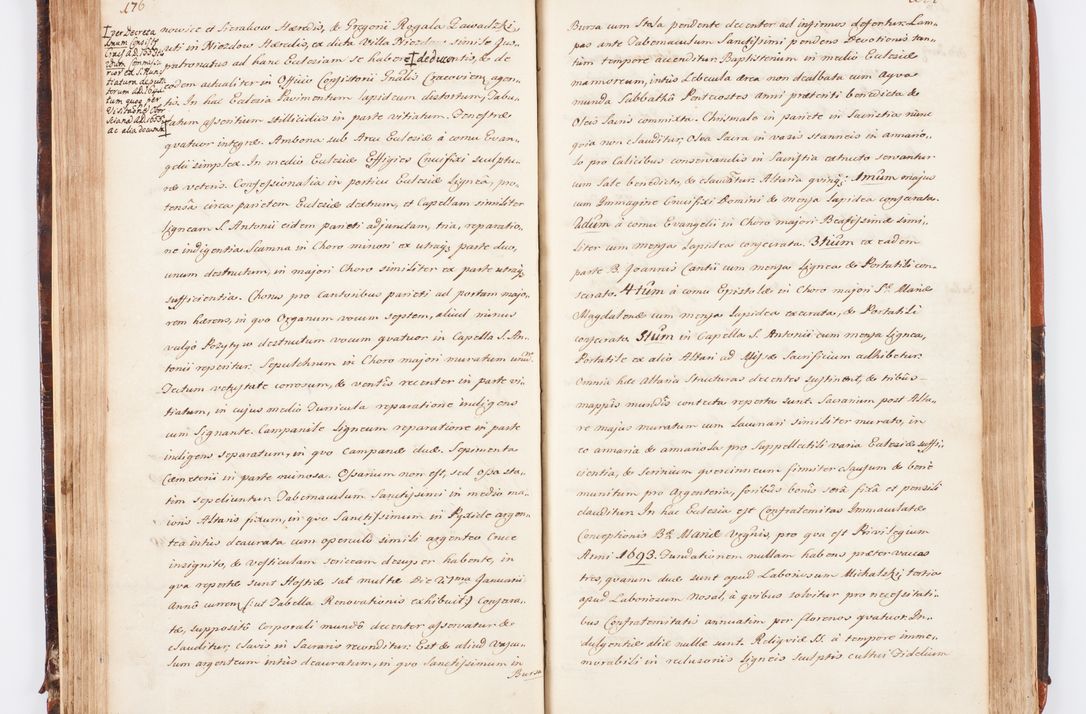 176
nowice et Sierakow Hæredis, & Gregorii Rogala Zawadzki
uti in Niezdow Hæredis, ex dicta Villa Niezdow simile Jus
patronatus ad hanc Ecclesiam se habere ‡ deducentis, & de
eodem actualiter in Officio Consistorii Gnalis Cracovien agen„
tis. In hac Ecclesia Pavimentum lapideum distortum, Tabu„
latum asseritium stillicidiis in parte vitiatum. Fenestræ
quatuor integræ. Ambona sub Arcu Ecclesiæ à cornu Evan„
gelii simplex. In medio Ecclesiæ Effigies Crucifixi sculptu„
ræ veteris. Confessionalia in porticu Ecclesiæ lignea, pro„
tensa circa parietem Ecclesiæ dextrum, et Capellam similiter
ligneam S. Antonii eidem parieti adjunctam, tria, reparatio„
ne indigentia. Scamna in Choro minori ex utraq; parte duo,
unum destructum, in majori Choro similiter ex parte utraq;
sufficientia. Chorus pro Cantoribus parieti ad portam majo„
rem hærens, in quo Organum vocum septem, aliud minus
vulgò Pozytyw destructum vocum quatuor in Capella S. An„
tonii reperitur. Sepulchrum in Choro majori muratum unũ.
Tectum vetustate corrosum, & ventis recenter in parte vi„
tiatum, in cujus medio Turricula reparatione indigens
cum Signante. Campanile ligneum reparatione in parte
indigens separatum, in quo Campanæ duæ. Sepimenta
Cæmeterii in parte ruinosa. Ossarium non est, sed ossa sta„
tim sepeliuntur. Tabernaculum Sanctissimi in medio ma„
ioris Altaris fixum, in quo Sanctissimum in Pyxide argen„
tea intùs deaurata cum operculo simili argenteo Cruce
insignito, & vesticulam sericeam desuper habente, in
qua repertæ sunt Hostiæ sat multæ Die VIta Januarii
Anno curren: (ut Tabella Renovationis exhibuit) Consecra„
tæ, suppositô Corporali mundô decenter asservatur &
clauditur, clavis in Sacrario reconditur. Est & aliud Vascu„
lum argenteum intùs deauratum, in quo Sanctissimum in
Bursa
‡ per Decreta
Consist
Crac: A.D. 1655.
Commissa„
rior ex S. Nun„
tiatura deputa„
torum A.D.
tum quoq; per
Visitationẽ
A.D. 1655.
ac alia
Bursa cum Stola pendente decenter ad infirmos defertur. Lam„
pas ante Tabernaculum Sanctissimi pendens Devotionis tan„
tùm tempore accenditur. Baptisterium in medio Ecclesiæ
marmoreum, intùs Lebecula ærea non dealbata cum Aqua
munda Sabbathô Pentecostes anni præteriti benedicta &
Oleis Sacris commixta. Chrismale in pariete in Sacristia nunc
quia non clauditur, Olea Sacra in vasis stanneis in armario„
lo pro Calicibus conservandis in Sacristia extructo servantur
cum Sale benedicto, & clauditur. Altaria quinq; 1mum majus
cum Immagine Crucifixi Domini & mensa lapidea consecrata.
2dum à cornu Evangelii in Choro majori Beatissimæ simi„
liter cum mensa lapidea consecrata. 3tium ex eadem
parte B. Joannis Cantii cum mensa lignea & Portatili con„
secrato. 4tum à cornu Epistolæ in Choro majori S. Mariæ
Magdalenæ cum mensa lapidea execrata, & Portatili
consecrato. 5tum in Capella S. Antonii cum mensa lignea,
Portatile ex alio Altari ad Missæ Sacrificium adhibetur.
Omnia hæc Altaria Structuras decentes sustinent, & tribus
mappis mundis contecta reperta sunt. Sacrarium post Alta„
re majus muratum cum Lavacri similiter murato, in
eo armaria & armariola pro Suppellectili varia Ecclesiæ suffi„
cientia, & Scrinium quercineum firmiter clausum & benè
munitum pro Argenteria, foribus bonis serâ fixâ et pensili
clauditur. In hac Ecclesia est Confraternitas Immaculatæ
Conceptionis B. Mariæ Vginis, pro qua est Privilegium
Anni 1693. Fundationem nullam habens præter vaccas
tres, quarum duæ sunt apud Laboriosum Michalski, tertia
apud Laboriosum Nosal, à quibus solvitur pro necessitati„
bus Confraternitatis annuatim per florenos quatuor. In„
dulgentiæ aliæ nullæ sunt. Reliquiæ SS. à tempore imme„
morabili in reclusoriis ligneis sculptis cultui Fidelium